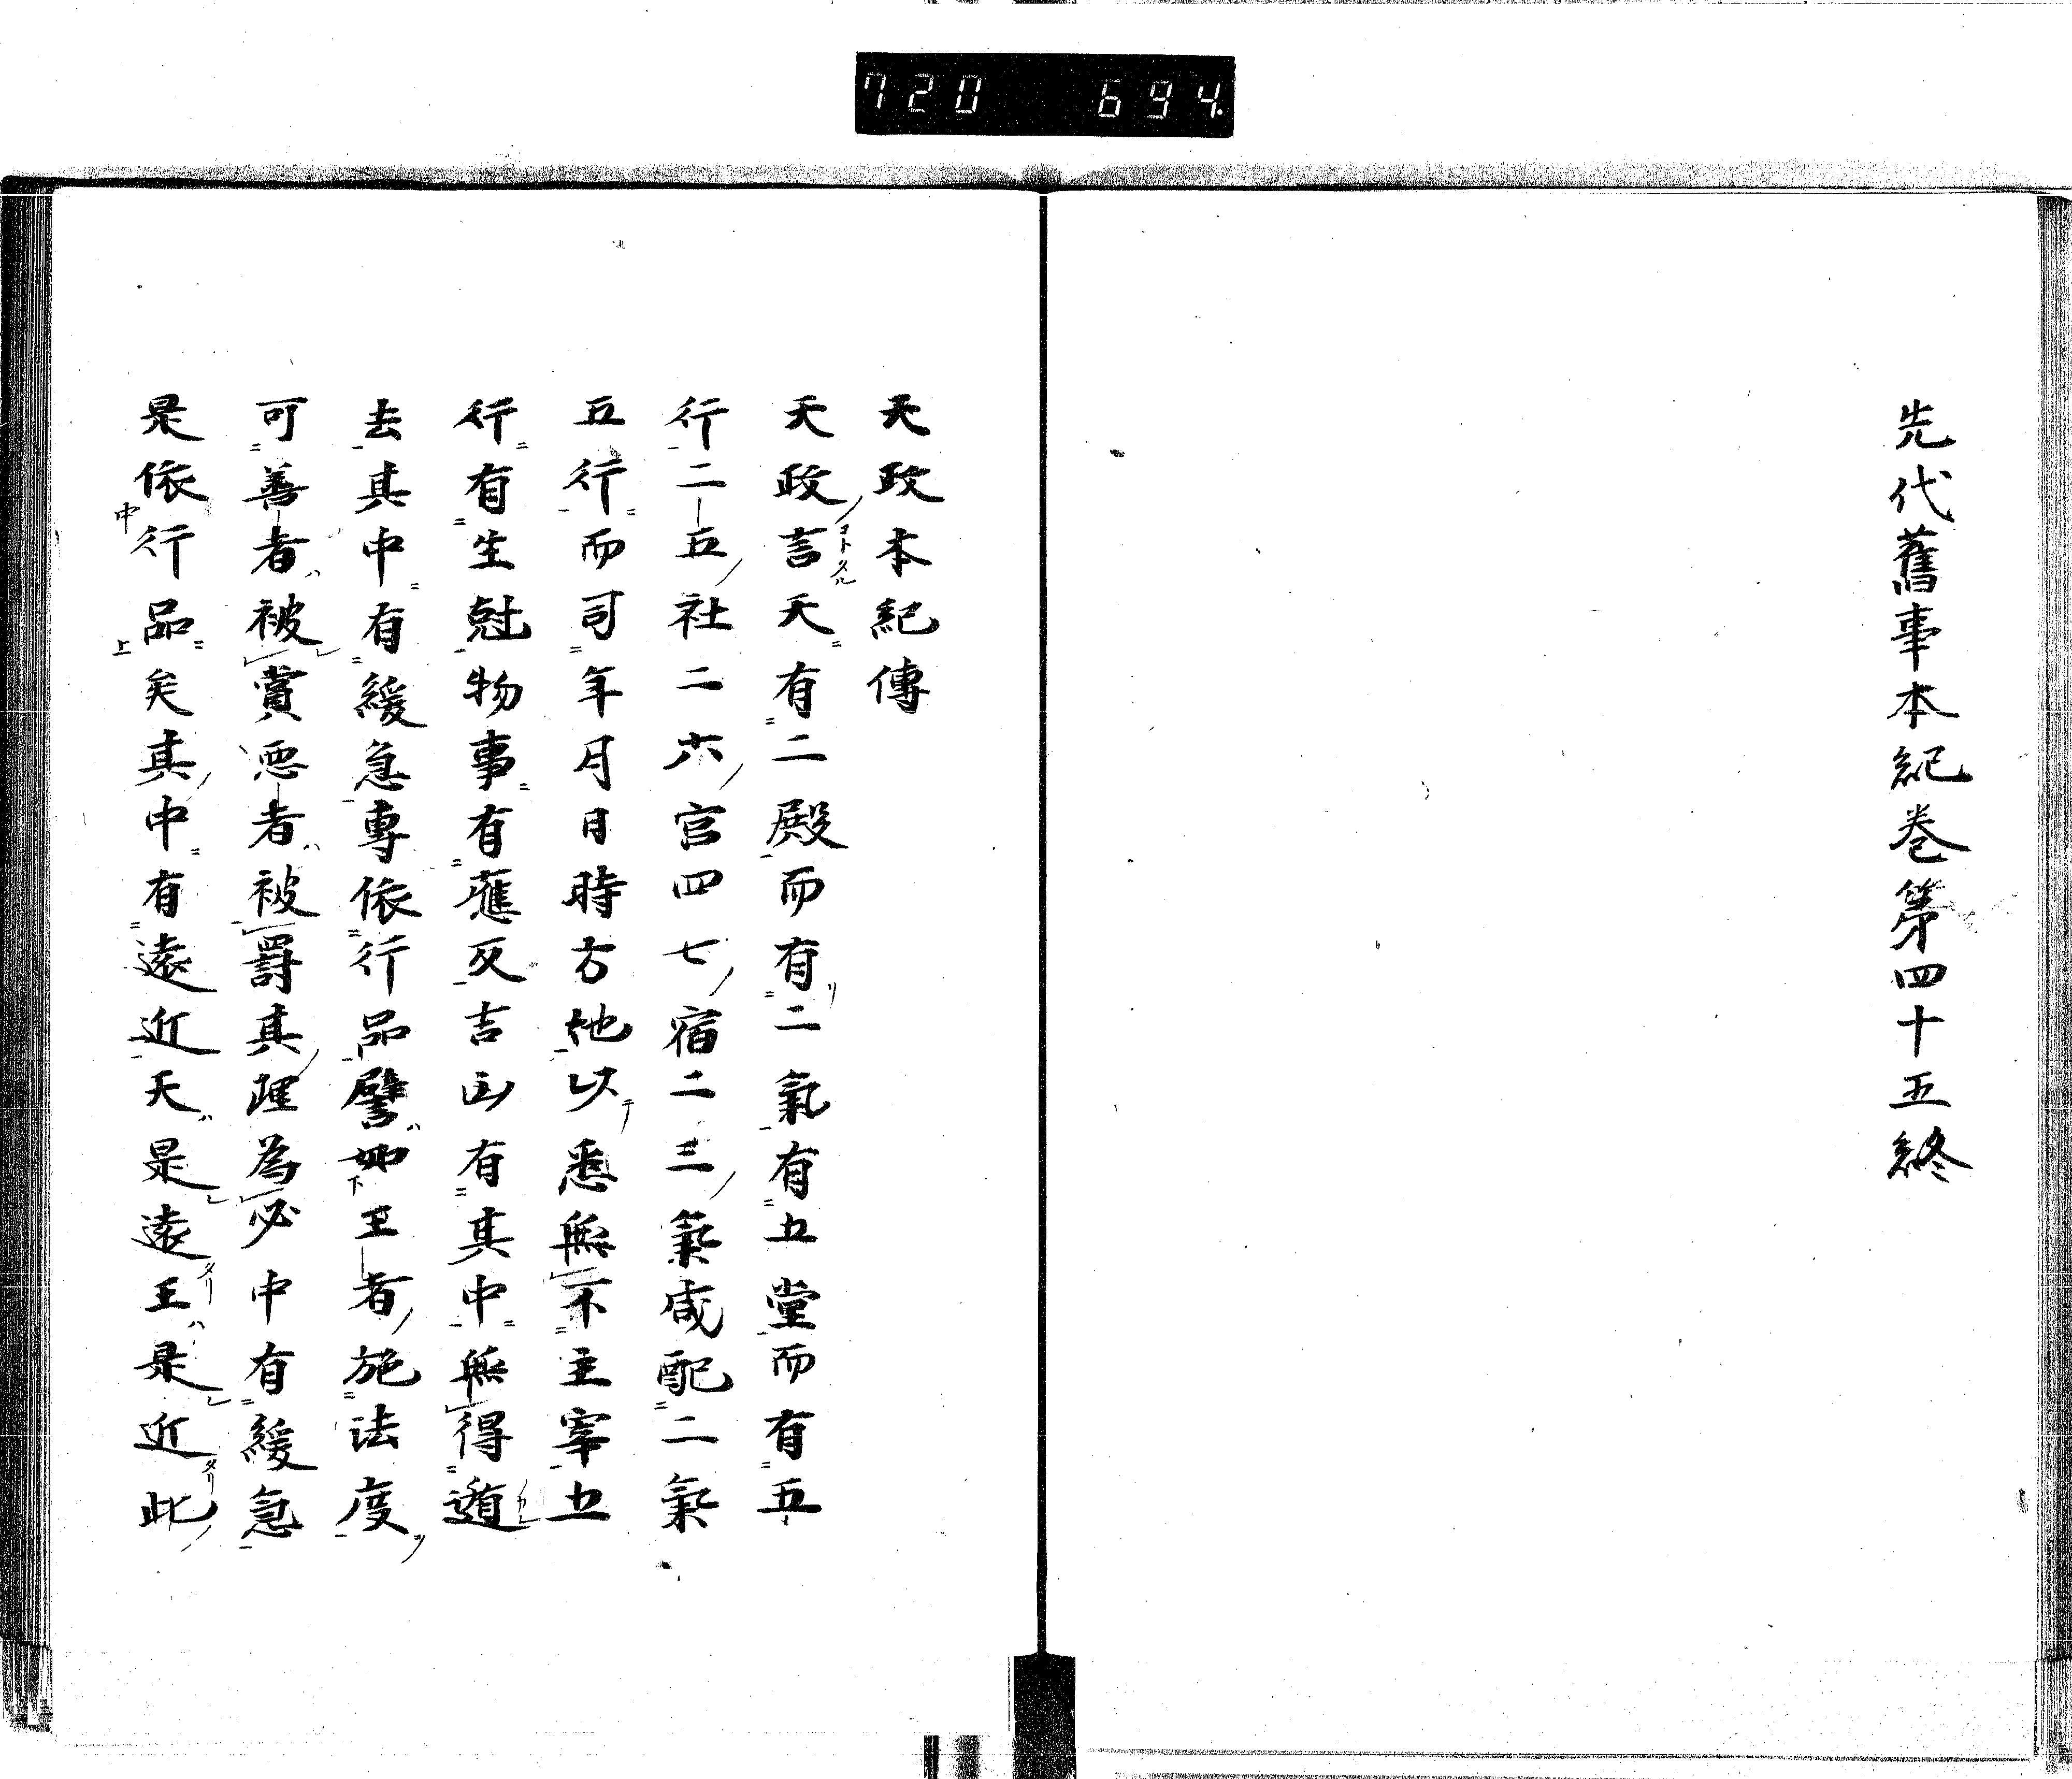 720 694.
先代舊事本紀巻第四十五終
天政本紀傳
天政言天有二殿而有二氣有五堂而有五
行二五社二六官四七宿二三氣咸配二氣
五行而司年月日時方地以悉無不主宰五
行有生尅物事有應反吉凶有其中無得遁
去其中有緩急專依行品譬如王者施法度
可善者被賞惡者被罸其理為必中有緩急
是依行品矣其中有遠近天是遠王是近此